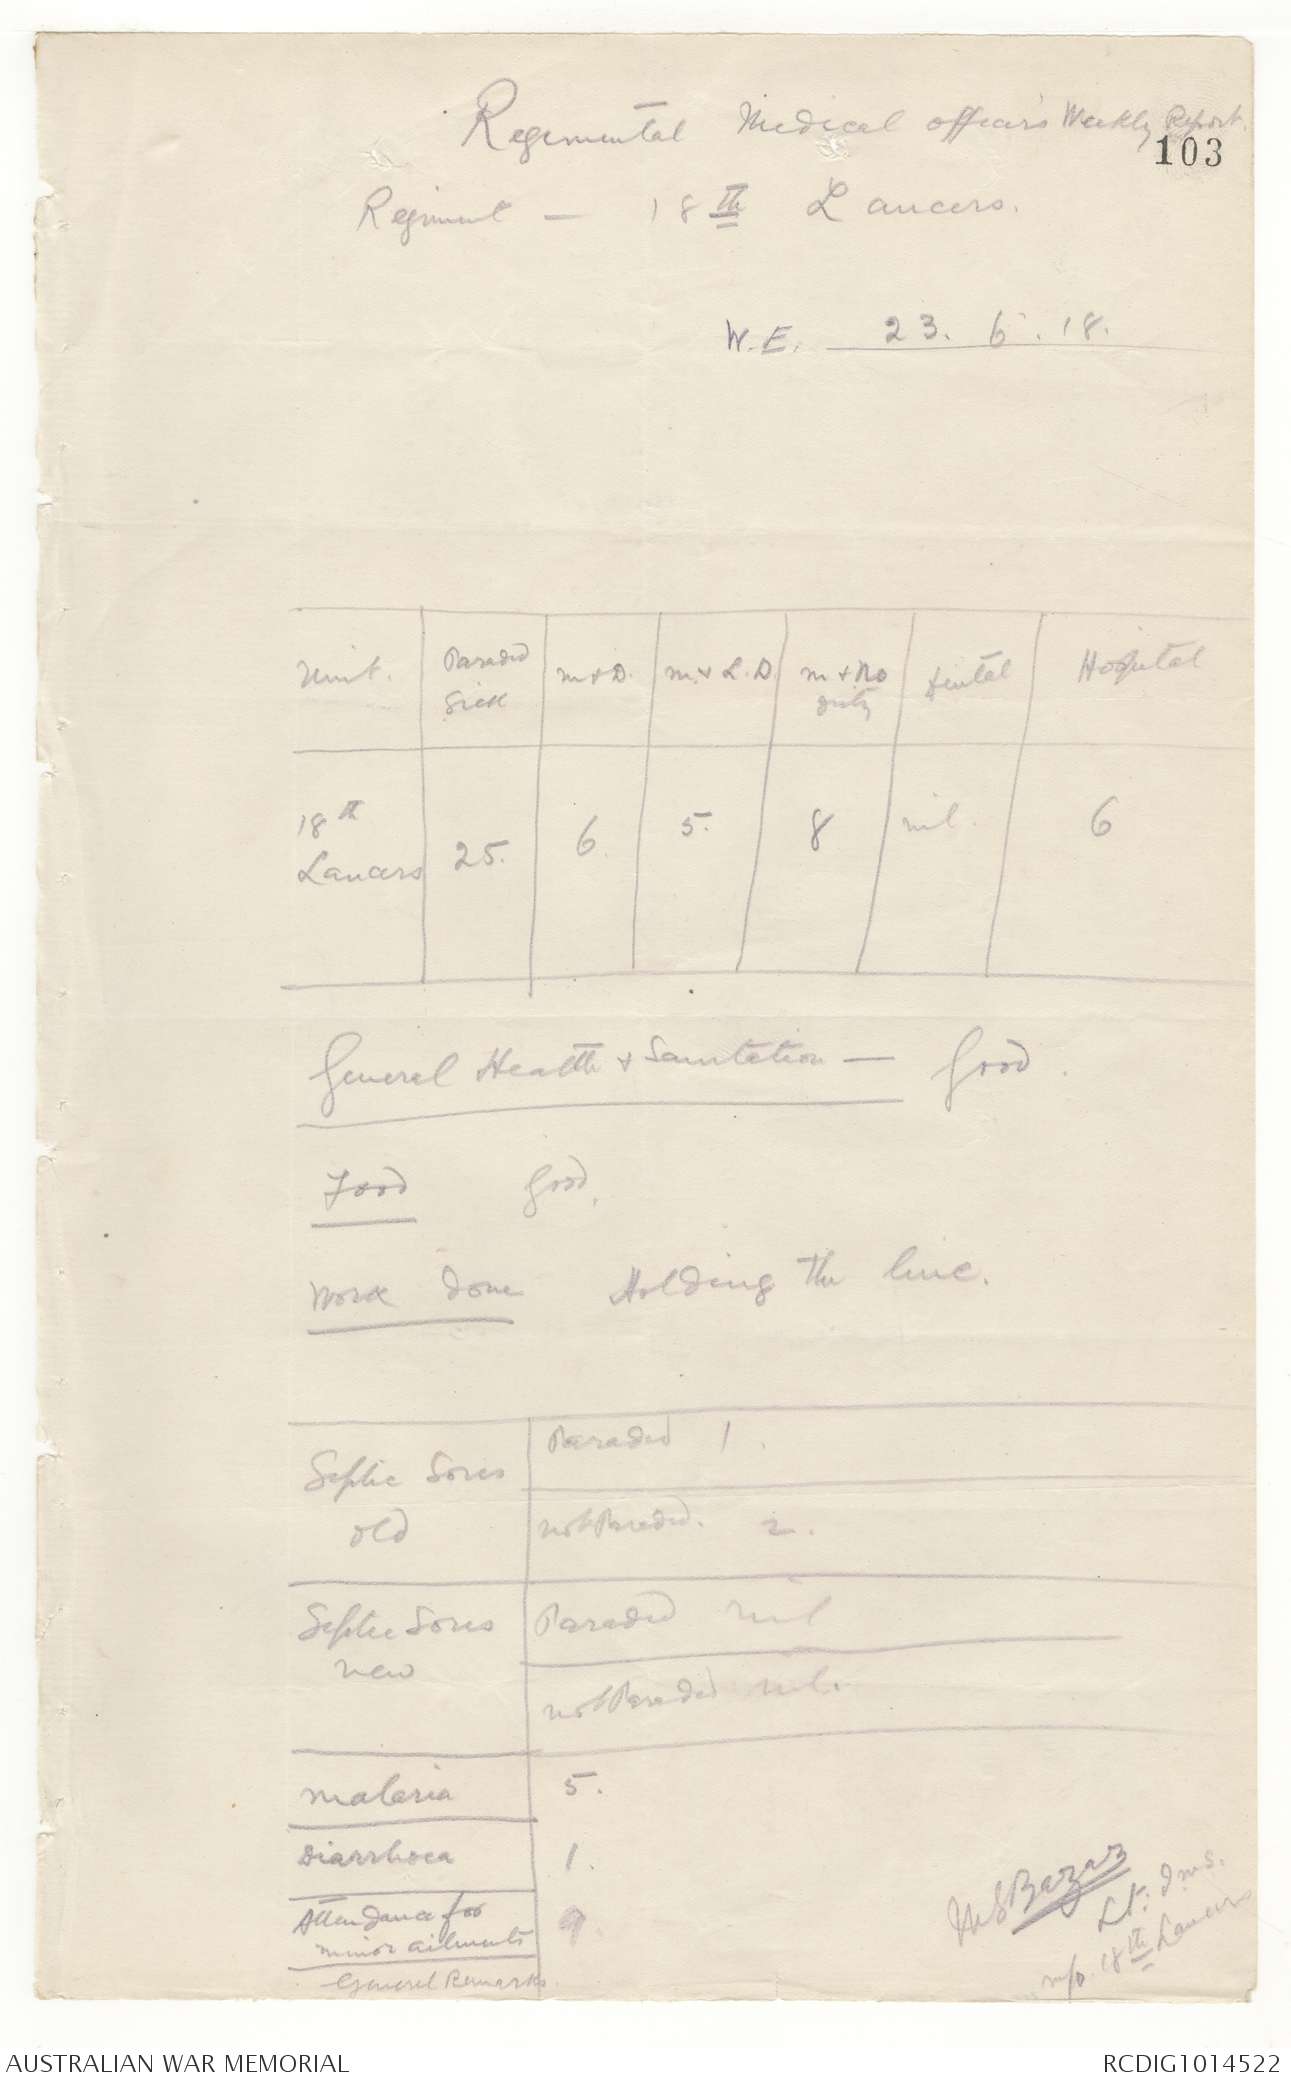 Regimental Medical officer's Weekly Report.
103
Regiment — 18th Lancers.
W.E. 23. 6. 18.
Unit. Paraded Sick m & D. m & L.D. m & No duty Dental Hospital
18th Lancers 25. 6. 5. 8 nil. 6
General Health & Sanitation — Good.
Food Good.
Work done Holding the line.
Septic Sores old Paraded 1.
not Paraded. 2.
Septic Sores new Paraded nil
not Paraded nil.
malaria 5.
Diarrhoea 1.
Attendance for minor ailments 9.
General Remarks.
Bazaz
Lt. I.M.S.
m/o. 18th Lancers
AUSTRALIAN WAR MEMORIAL
RCDIG1014522